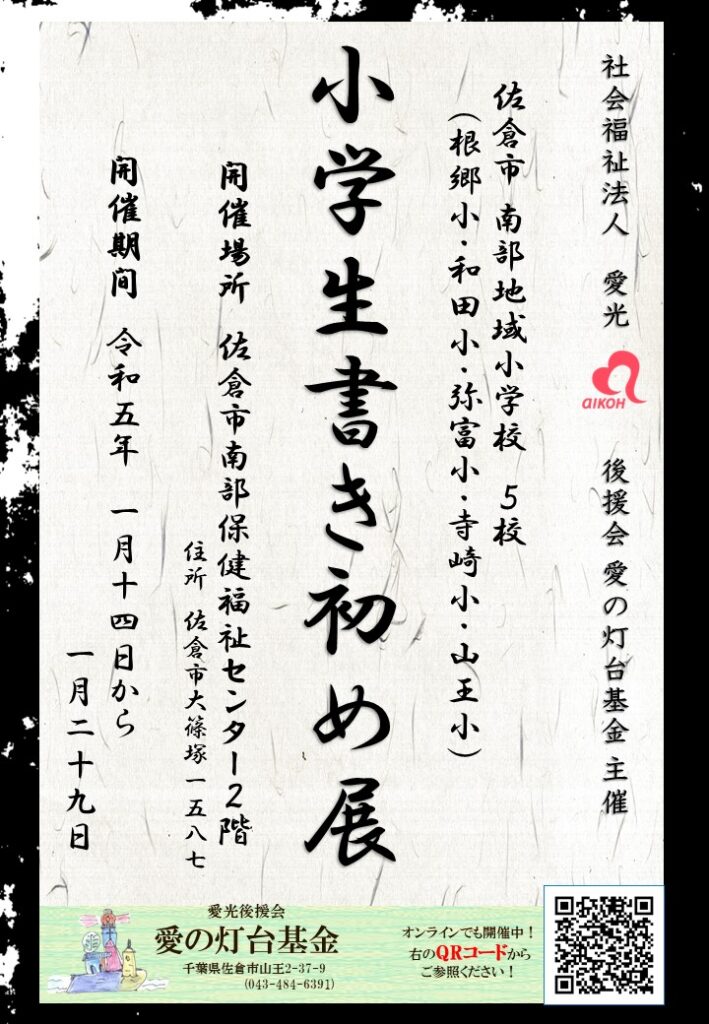 社会福祉法人 愛光 aIKOH 後援会 愛の灯台基金 主催
佐倉市 南部地域小学校 5校
(根郷小・和田小・弥富小・寺崎小・山王小)
小学生書き初め展
開催場所 佐倉市南部保健福祉センター2階
住所 佐倉市大篠塚一五八七
開催期间 令和五年 一月十四日から
一月二十九日
愛光後援会
愛の灯台基金
千葉県佐倉市山王2-37-9
(043-484-6391)
オンラインでも開催中！
右のQRコードから
ご参照ください！